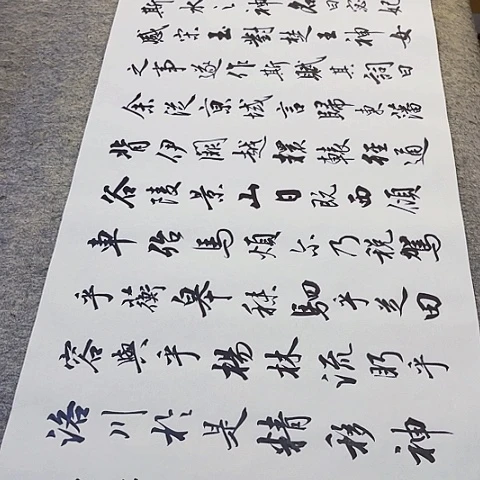 斯水之神名曰宓妃
感宋玉對楚王神女
之事遂作斯賦其詞曰
余從京域言歸東藩
背伊闕越轘轅經通
谷陵景山日既西傾
車殆馬煩尓乃税駕
乎蘅皋秣駟乎芝田
容與乎楊林流眄乎
洛川於是精移神